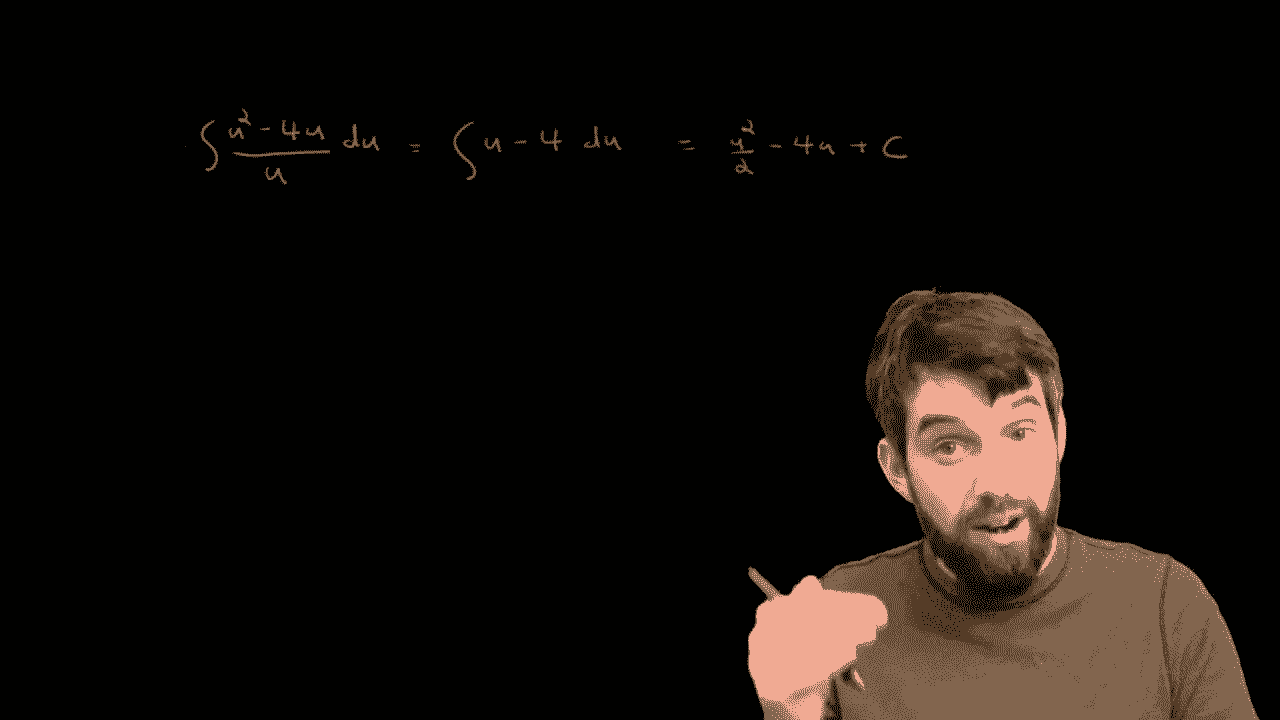 ∫ (u² - 4u)/u du = ∫ u - 4 du = u²/2 - 4u + C